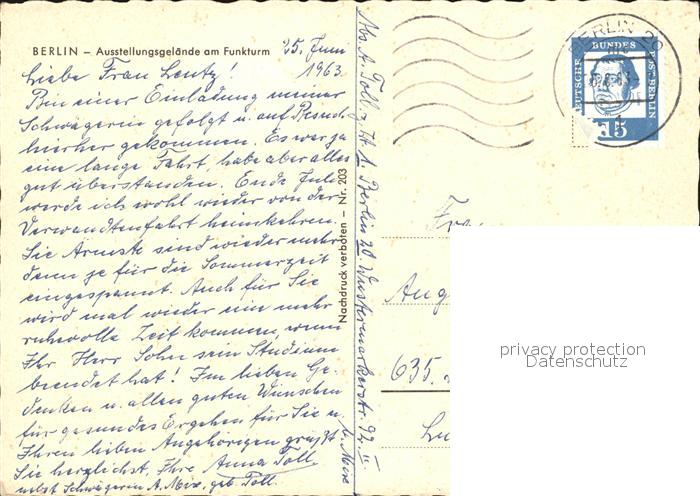 BERLIN – Ausstellungsgelände am Funkturm
25. Juni
1963
Liebe Frau Lentz!
Bin einer Einladung meiner
Schwägerin gefolgt u. auf Besuch
hierher gekommen. Es war ja
eine lange Fahrt, habe aber alles
gut überstanden. Ende Juli
werde ich wohl wieder von der
Verwandtenfahrt heimkehren.
Sie Ärmste sind wieder mehr
denn je für die Sommerzeit
eingespannt. Auch für Sie
wird mal wieder ein mehr
ruhevolle Zeit kommen, wenn
Ihr Herr Sohn sein Studium
beendet hat! Im lieben Ge-
denken u. allen guten Wünschen
für gesundes Ergehen für Sie u.
Ihren lieben Angehörigen grüßt
Sie herzlichst, Ihre Anna Toll
nebst Schwägerin A. Mix, geb. Toll.
Nachdruck verboten – Nr. 203
Abs. A. Toll z. Zt. 1. Berlin 20. Wustermarkerstr. 92 II
b. Mix
BERLIN 20
DEUTSCHE BUNDES POST BERLIN
15
Frau
Aug
635.
privacy protection
Datenschutz